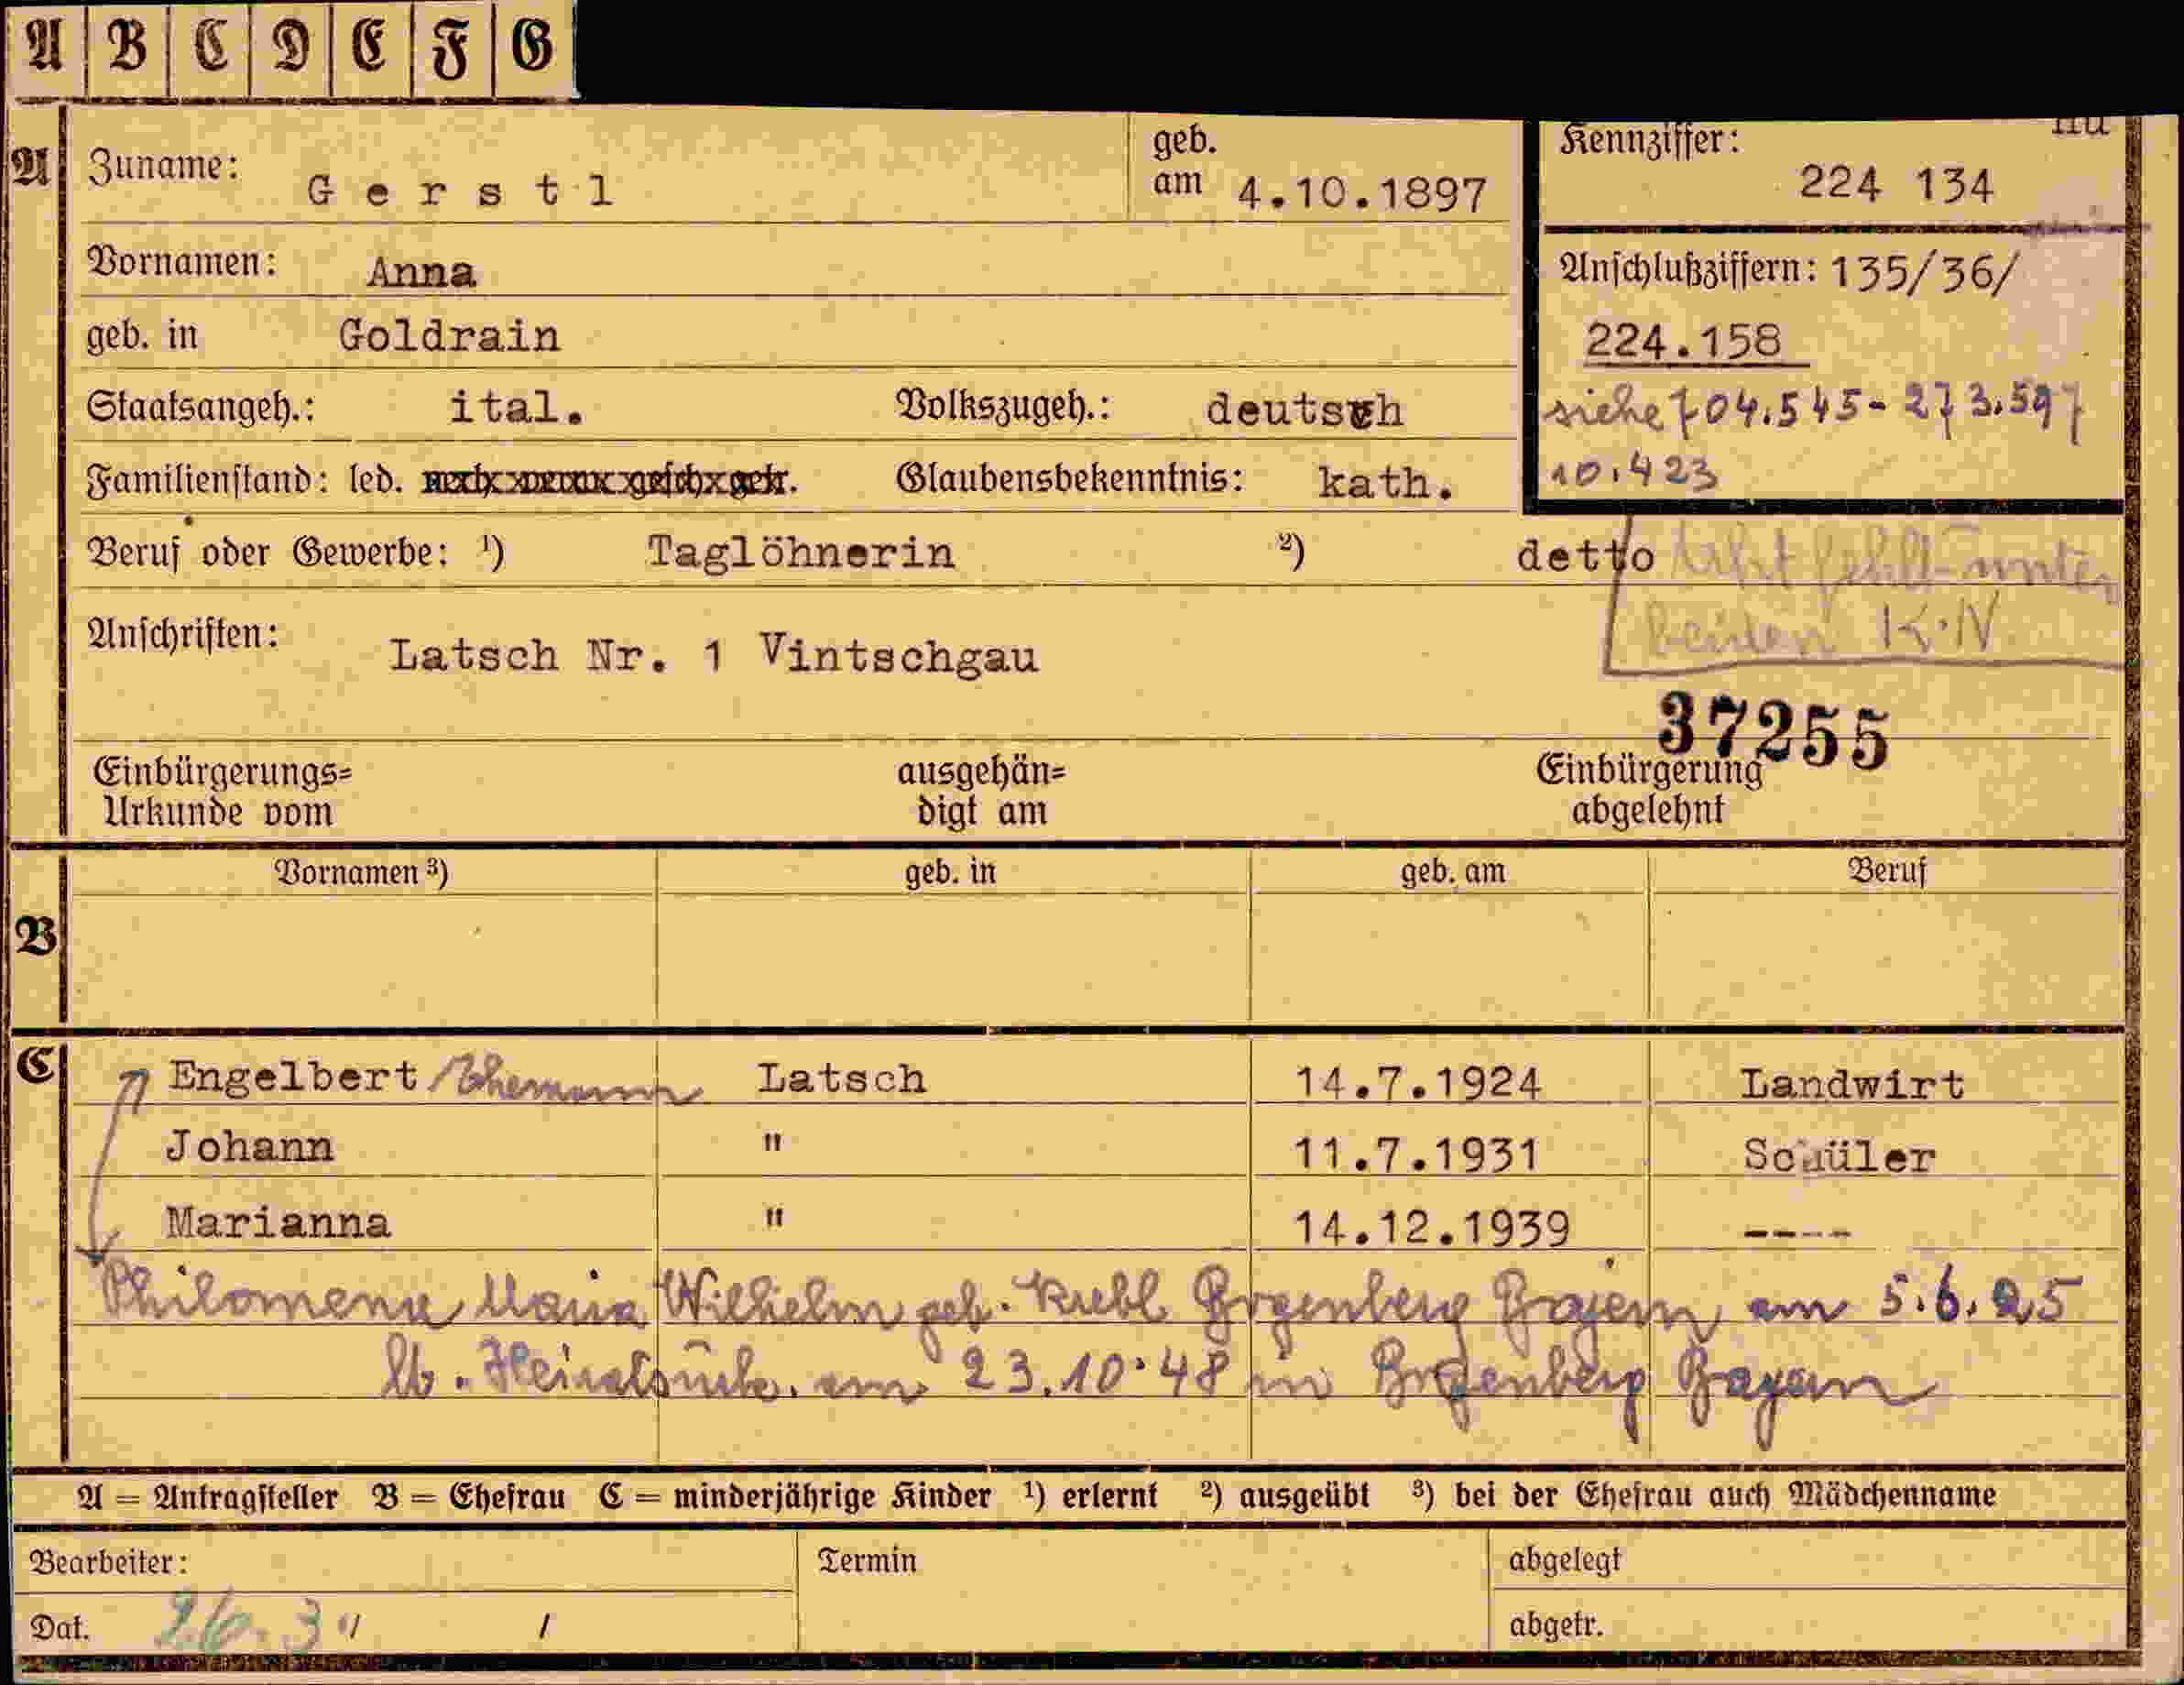 A B C D E F G
A Zuname: Gerstl geb. am 4.10.1897 Kennziffer: 224 134
Vornamen: Anna Anschlußziffern: 135/36/
geb. in Goldrain 224.158
Staatsangeh.: ital. Volkszugeh.: deutsch siehe 704.545-273.597
Familienstand: led. Glaubensbekenntnis: kath. 10.423
Beruf oder Gewerbe: ¹) Taglöhnerin ²) detto fehlt unter
Anschriften: Latsch Nr. 1 Vintschgau beiden K.N
37255
Einbürgerungs= ausgehän= Einbürgerung
Urkunde vom digt am abgelehnt
Vornamen ³) geb. in geb. am Beruf
B
C Engelbert Ehemann Latsch 14.7.1924 Landwirt
Johann " 11.7.1931 Schüler
Marianna " 14.12.1939 ----
Philomena Maria Wilhelm geb. Krebl Bogenberg Bayern am 5.6.25
lt. Heiratsurk. am 23.10.48 in Bogenberg Bayern
A = Antragsteller B = Ehefrau C = minderjährige Kinder ¹) erlernt ²) ausgeübt ³) bei der Ehefrau auch Mädchenname
Bearbeiter: Termin abgelegt
Dat. 26.3 / / abgetr.